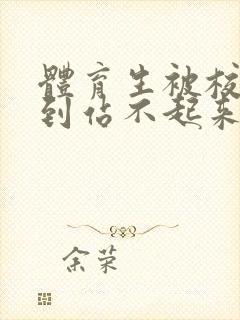 體育生被校
到佔不起來
余荣